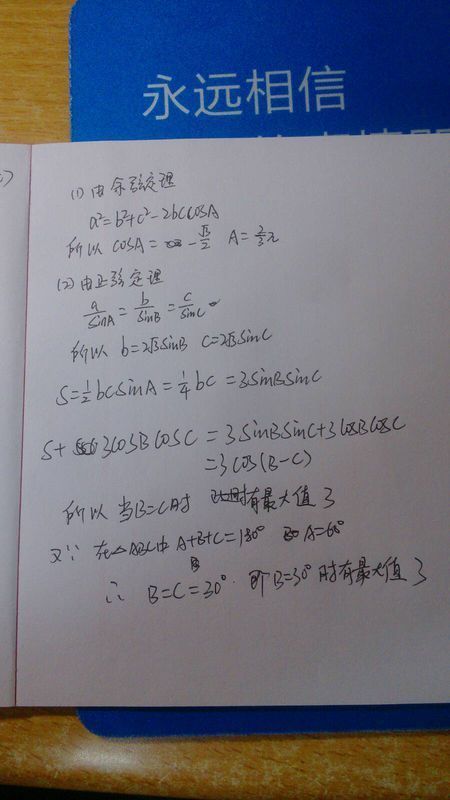 永远相信
(1) 由余弦定理
a²=b²+c²-2bccosA
所以 cosA= -√3/2 A=2/3π
(2) 由正弦定理
a/sinA = b/sinB = c/sinC
所以 b=2√3sinB c=2√3sinC
S=1/2bcsinA=1/4bc=3sinBsinC
S+3cosBcosC=3sinBsinC+3cosBcosC
=3cos(B-C)
所以当B=C时 有最大值3
又∵ 在△ABC中 A+B+C=180° A=60°
∴ B=C=30°. 即B=30°时有最大值3